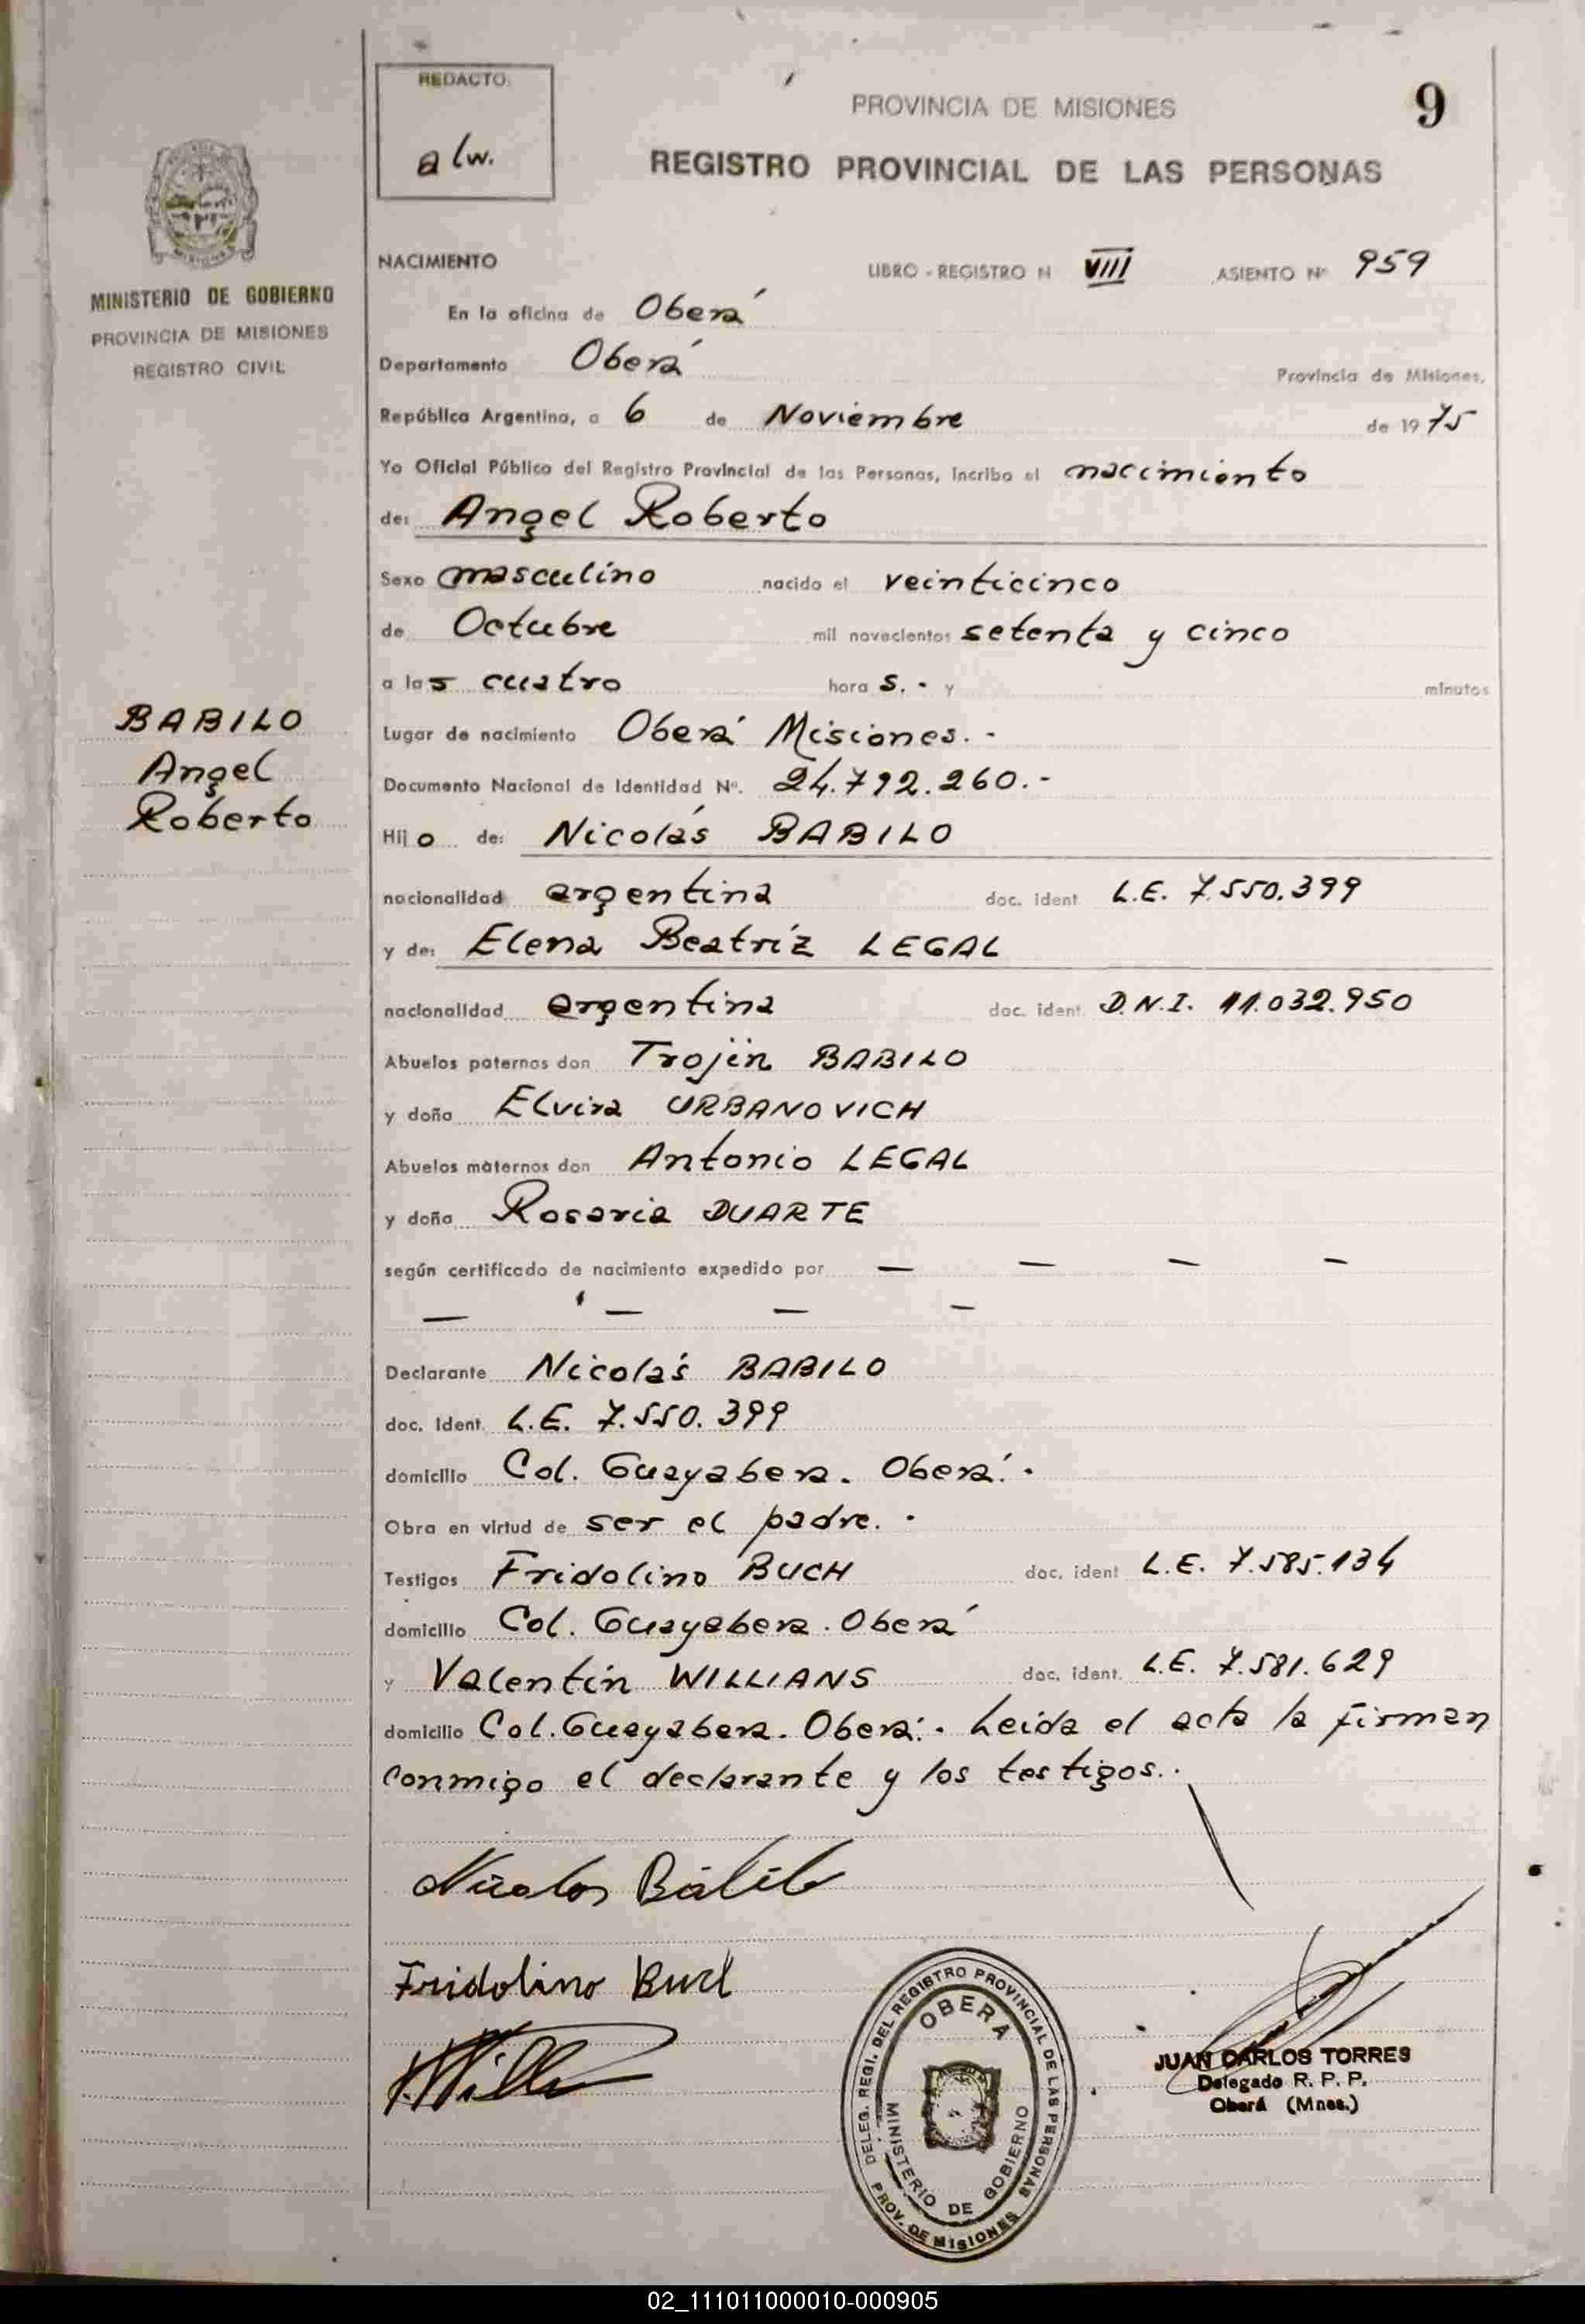 REDACTO:
a lw.
PROVINCIA DE MISIONES
9
REGISTRO PROVINCIAL DE LAS PERSONAS
MINISTERIO DE GOBIERNO
PROVINCIA DE MISIONES
REGISTRO CIVIL
NACIMIENTO LIBRO - REGISTRO N VIII ASIENTO Nº 959
En la oficina de Oberá
Departamento Oberá Provincia de Misiones,
República Argentina, a 6 de Noviembre de 1975
Yo Oficial Público del Registro Provincial de las Personas, incribo el nacimiento
de: Angel Roberto
Sexo masculino nacido el veinticinco
de Octubre mil novecientos setenta y cinco
a las cuatro hora s.- y minutos
BABILO
Angel
Roberto
Lugar de nacimiento Oberá Misiones.-
Documento Nacional de Identidad Nº. 24.792.260.-
Hijo de: Nicolás BABILO
nacionalidad argentina doc. ident L.E. 7.550.399
y de: Elena Beatríz LEGAL
nacionalidad argentina doc. ident. D.N.I. 11.032.950
Abuelos paternos don Trojín BABILO
y doña Elvira URBANOVICH
Abuelos maternos don Antonio LEGAL
y doña Rosaria DUARTE
según certificado de nacimiento expedido por — — — —
— — — —
Declarante Nicolás BABILO
doc. ident. L.E. 7.550.399
domicilio Col. Guayabera. Oberá.-
Obra en virtud de ser el padre.-
Testigos Fridolino BUCH doc. ident L.E. 7.585.134
domicilio Col. Guayabera. Oberá
y Valentín WILLIANS doc. ident. L.E. 7.581.629
domicilio Col. Guayabera. Oberá.- Leida el acta la firman
conmigo el declarante y los testigos.-
Nicolas Babilo
Fridolino Buch
DELEG. REGI. DEL REGISTRO PROVINCIAL DE LAS PERSONAS
OBERA
MINISTERIO DE GOBIERNO
PROV. DE MISIONES
JUAN CARLOS TORRES
Delegado R. P. P.
Oberá (Mnes.)
02_111011000010-000905